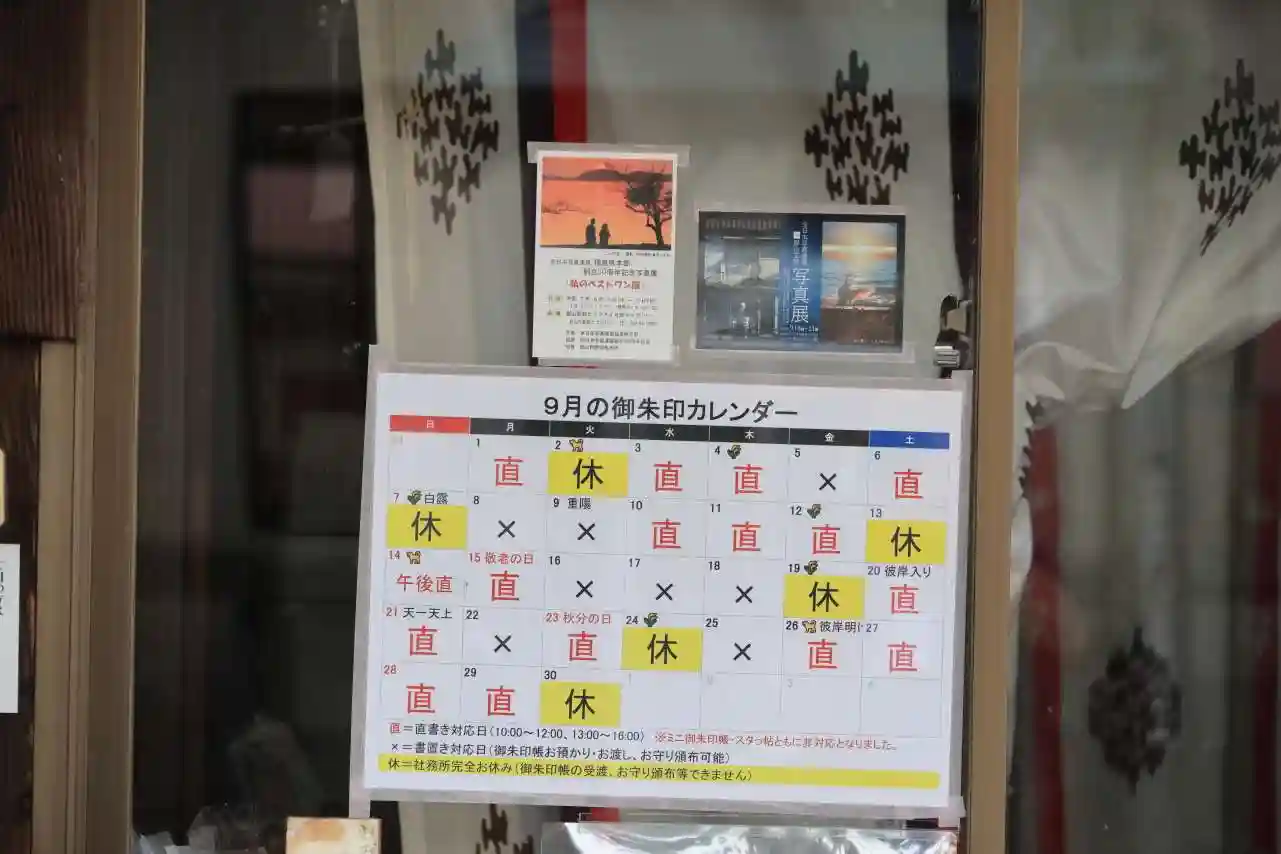 私のベストワン展
写真展
9月の御朱印カレンダー
日 月 火 水 木 金 土
1 2 3 4 5 6
直 休 直 直 × 直
7 白露 8 9 重陽 10 11 12 13
休 × × 直 直 直 休
14 15 敬老の日 16 17 18 19 20 彼岸入り
午後直 直 × × × 休 直
21 天一天上 22 23 秋分の日 24 25 26 彼岸明け 27
直 × 直 休 × 直 直
28 29 30
直 直 休
直=直書き対応日(10:00~12:00、13:00~16:00) ※ミニ御朱印帳・スタンプ帖ともに非対応となりました。
×=書置き対応日(御朱印帳お預かり・お渡し、お守り頒布可能)
休=社務所完全お休み(御朱印帳の受渡、お守り頒布等できません)